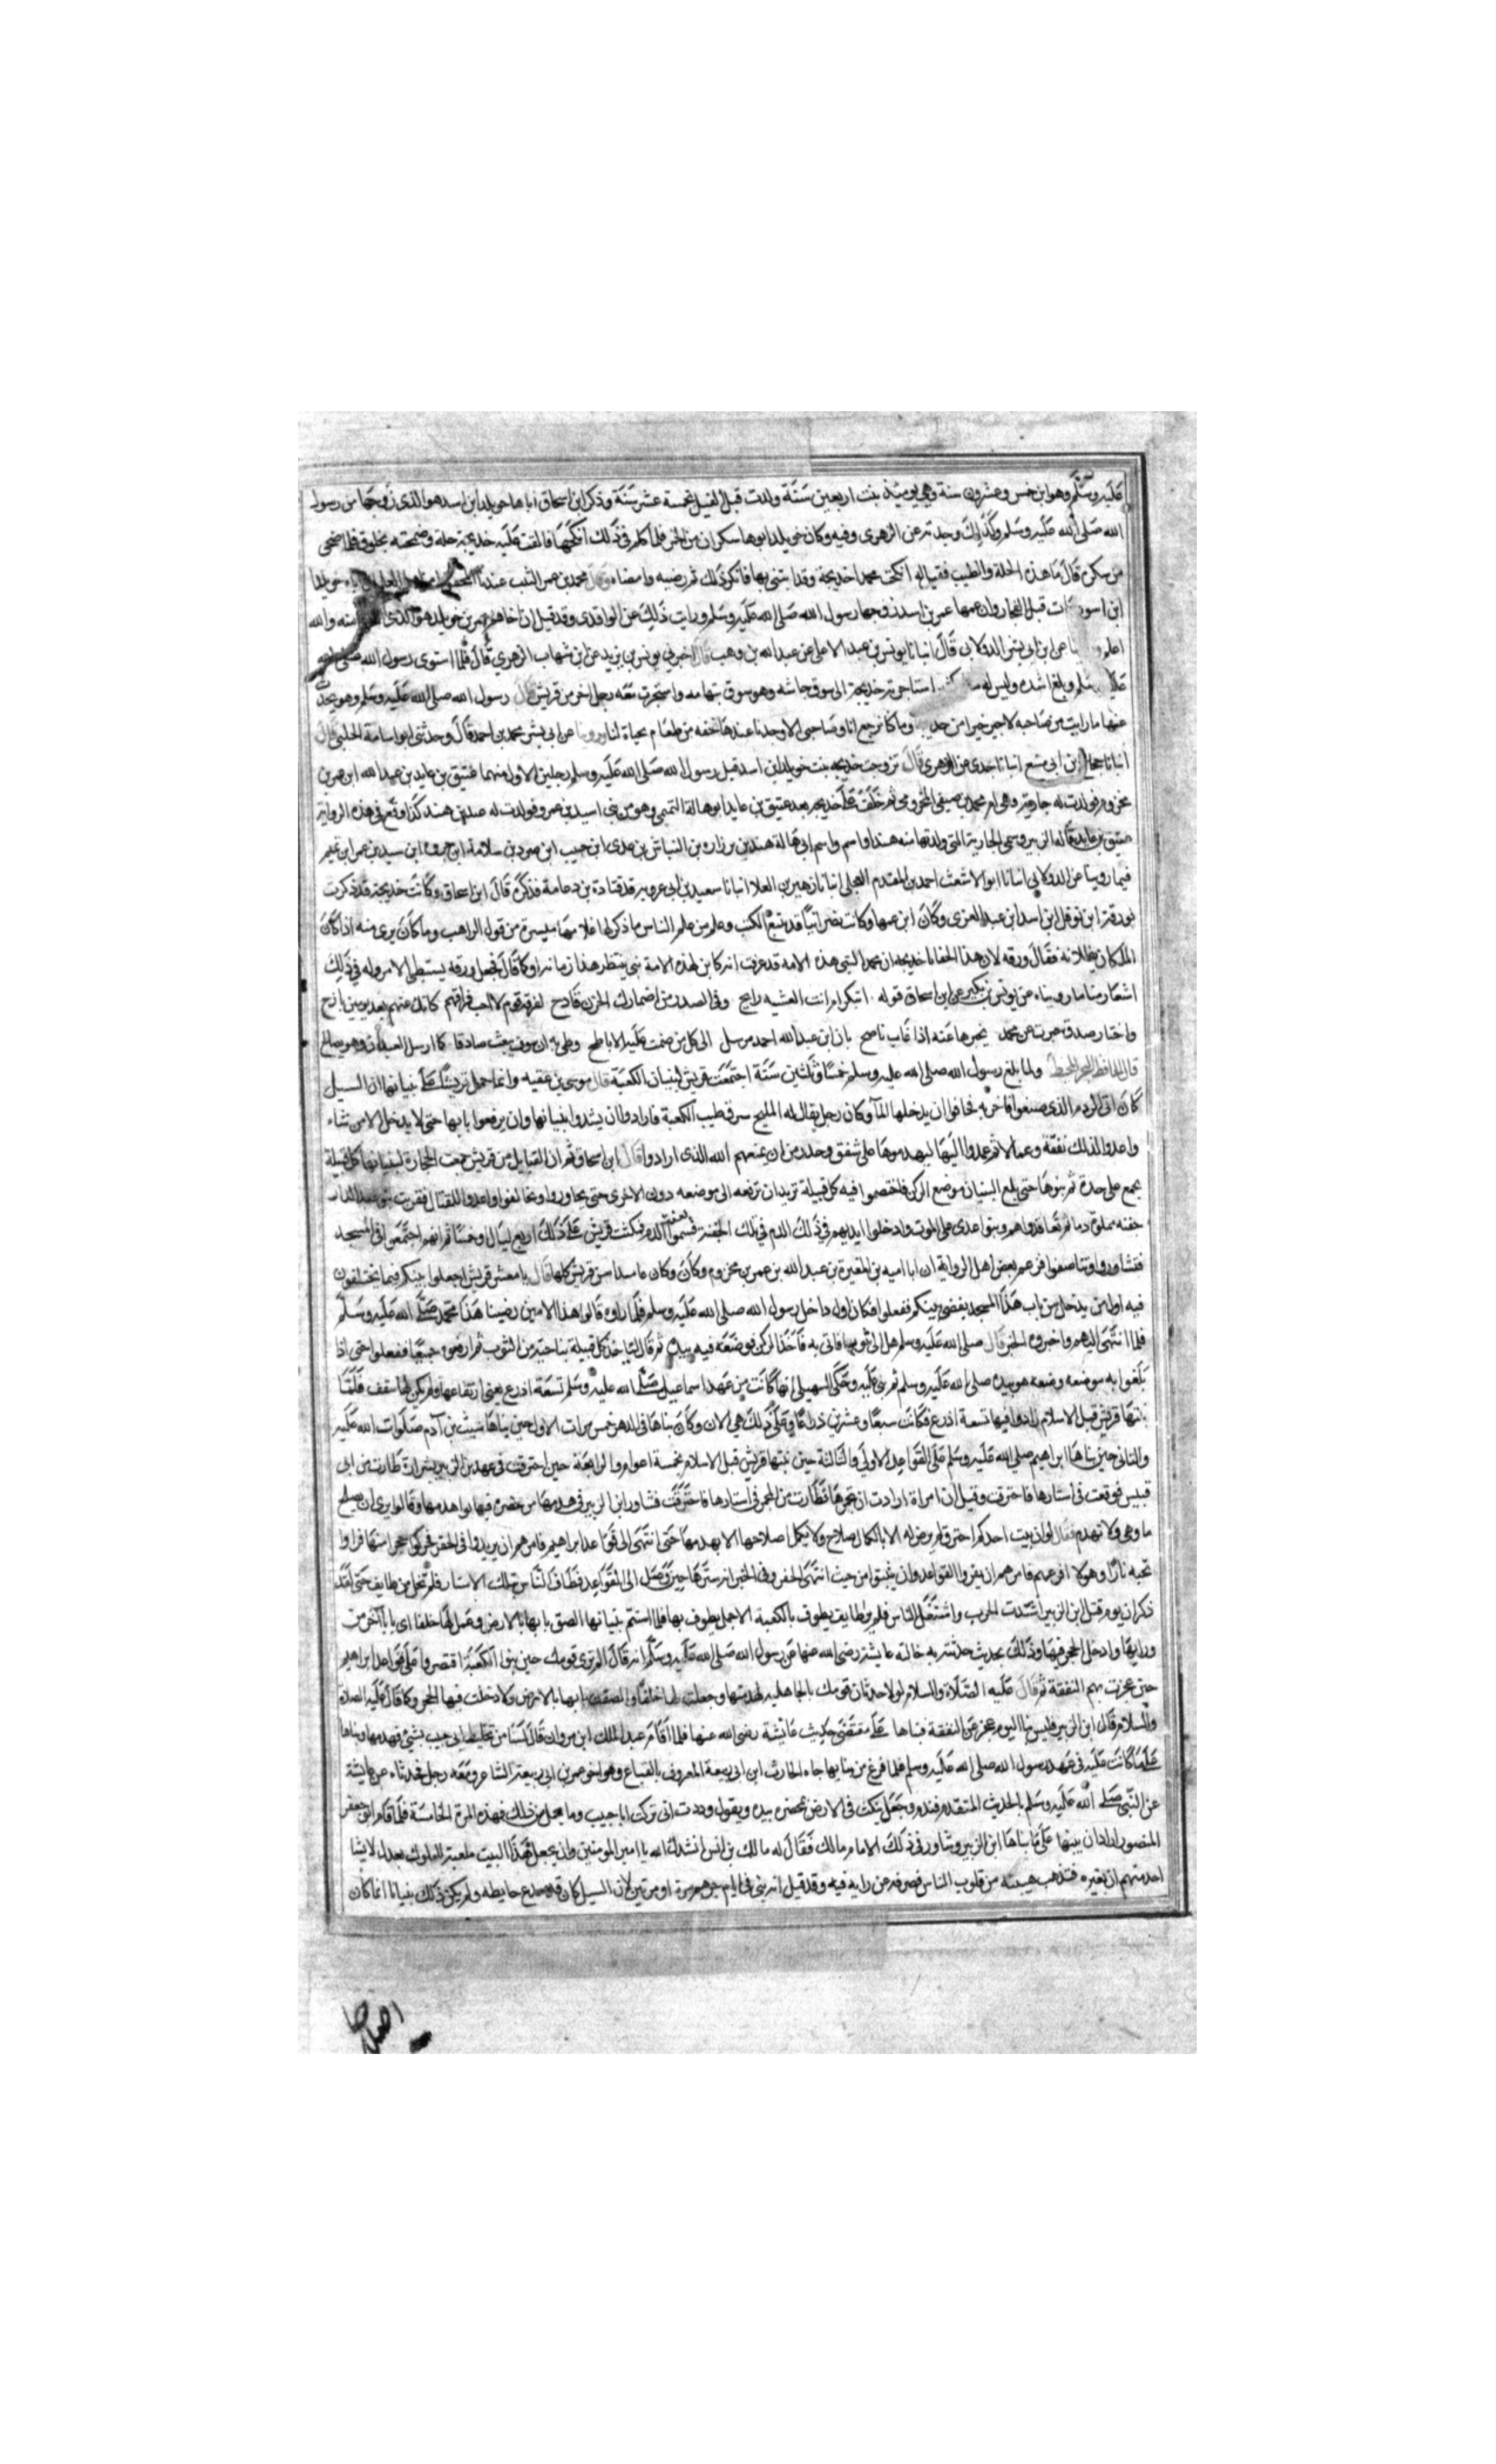 عليه وسلم وهو ابن خمس وعشرون سنة وهي يوميذ بنت اربعين سنة ولدت قبل الفيل بخمسة عشر سنة وذكر ابن اسحاق ان اباها خويلد ابن اسد هو الذي زوجها من رسول
الله صلى الله عليه وسلم وكذلك وجدته عن الزهرى وفيه وكان خويلد ابوها سكران من الخمر فلما كلم في ذلك انكحها فالقت عليه خديجة حلة وضمخته بخلوق فلما صحى
من سكره قال ما هذه الحلة والطيب فقيل له انكحت محمدا خديجة وقد ابتنى بها فانكر ذلك ثم رضيه وامضاه وقال محمد بن عمر الثبت عندنا المحفوظ اهل العلم ان اباه خويلد
ابن اسد مات قبل الفجار وان عمها عمر بن اسد زوجها رسول الله صلى الله عليه وسلم ورايت ذلك عن الواقدى وقد قيل ان اخاها عمر بن خويلد هو الذى والله
اعلم عن ابن ابى بشر الدولابى قال انبانا يونس بن عبد الاعلى عن عبد الله بن وهب قال اخبرنى يونس بن يزيد عن ابن شهاب الزهري قال فلما استوى رسول الله صلى الله
عليه وسلم وبلغ اشده وليس له استاجرته خديجة الى سوق حباشه وهو سوق بتهامه واستجرت معه رجل اخر من قريش قال رسول الله صلى الله عليه وسلم وهو يحدث
عنها ما رايت من صاحبه لاجير خيرا من خديجة وما كنا نرجع انا وصاحبى الا وجدنا عندها تحفه من طعام بحياة لنا وروينا عن ابى بشر محمد بن احمد قال وحدثنى ابو اسامة الحلبى قال
انبانا حجاج ابن ابى منيع انبانا جدى عن الزهرى قال تزوجت خديجه بنت خويلد ابن اسد قبل رسول الله صلى الله عليه وسلم رجلين الاول منهما عتيق بن عايد بن عبد الله ابن عمر بن
مخزوم فولدت له جارية وهى ام محمد بن صيفى المخزومى ثم خلف على خديجه بعد عتيق بن عايد ابو هالة التميمى وهو من بنى اسيد بن عمر وفولدت له هند بن هند كذا وقع في هذه الرواية
عتيق بن عايد قاله الزبير وسمى الجارية التى ولدتها منه هندا واسم واسم ابى هالة هند بن زراره بن النباش بن عدى ابن حبيب ابن صرد بن سلامة ابن جروه ابن اسيد بن عمر ابن تميم
فيما روينا عن الدولابى انبانا ابو الاشعث احمد بن المقدم العجلى انبانا زهير بن العلا انبانا سعيد بن ابى عروبه قد قتادة بن دعامة فذكره قال ابن اسحاق وكانت خديجة قد ذكرت
لورقة ابن نوفل ابن اسد ابن عبد العزى وكان ابن عمها وكانت نصرانيا قد تتبع الكتب وعلم من علم الناس ما ذكر لها غلامها ميسرة من قول الراهب وما كان يرى منه اذا كان
الملكان يظلانه فقال ورقه لان هذا الحقا يا خديجه ان محمدا لنبى هذه الامه قد عرفت انه كاين لهذه الامة نبى ينتظر هذا زمانه او كما قال فجعل ورقه يستبطى الامر وله في ذلك
اشعار منها ما رويناه عن يونس بن بكير عن ابن اسحاق قوله اتبكر ام انت العشيه رايح وفى الصدر من اضمارك الحزن قادح لفرقة قوم لا احب فراقهم كانك عنهم بعد يومين نازح
واخبار صدق خبرت عن محمد يخبرها عنه اذا غاب ناصح بان ابن عبد الله احمد مرسل الى كل من ضمت عليه الاباطح وظنى به ان سوف يبعث صادقا كما ارسل العبدان وهو صالح
ولما بلغ رسول الله صلى الله عليه وسلم خمسا وثلثين سنة اجتمعت قريش لبنيان الكعبة قال موسى بن عقبه وانما حمل قريشا على بنيانها ان السيل
كان اتى الردم الذى صنعوا فاخربه فخافوا ان يدخلها الماء وكان رجل يقال له المليح سرق طيب الكعبة فارادوا ان يشدوا بنيانها وان يرفعوا بابها حتى لا يدخل الا من شاء
واعدوا لذلك نفقة وعمالا ثم عمدوا اليها ليهدموها على شفق وحدر من ان يمنعهم الله الذى ارادوا قال ابن اسحاق ثم ان القبايل من قريش جمعت الحجارة لبنيانها كل قبيلة
تجمع على حدة ثم بنوها حتى بلغ البنيان موضع الركن فاختصموا فيه كل قبيلة تريد ان ترفعه الى موضعه دون الاخرى حتى تحاوروا وتخالفوا واعدوا للقتال فقربت بنو عبد الدار
جفنه مملوة دما ثم تعاقدوا هم وبنو عدى على الموت وادخلوا ايديهم في ذلك الدم في تلك الجفنة فسموا لعقة الدم فمكثت قريش على ذلك اربع ليال او خمسا ثم انهم اجتمعوا في المسجد
فتشاوروا وتناصفوا فزعم بعض اهل الرواية ان ابا اميه بن المغيرة بن عبد الله بن عمر بن مخزوم وكان وكان عاميذ اسن قريش كلها قال يا معشر قريش اجعلوا بينكم فيما تختلفون
فيه اول من يدخل من باب هذا المسجد يقضى بينكم ففعلوا فكان اول داخل رسول الله صلى الله عليه وسلم فلما راوه قالوا هذا الامين رضينا هذا محمد صلى الله عليه وسلم
فلما انتهى اليهم واخبروه الخبر قال صلى الله عليه وسلم هلم الى ثوبا فاتى به فاخذ الركن فوضعه فيه بيده ثم قال لتاخذ كل قبيلة بناحية من الثوب ثم ارفعوه جميعا ففعلوا حتى اذا
بلغوا به موضعه وضعه هو بيده صلى الله عليه وسلم ثم بنى عليه وحكى السهيلى انها كانت من عهد اسماعيل صلى الله عليه وسلم تسعة اذرع يعنى ارتفاعها ولم يكن لها سقف فلما
بنتها قريش قبل الاسلام زادوا فيها تسعة اذرع فكانت سبعا وعشرين ذراعا وعلى ذلك هى الان وكان بناها في الدهر خمس مرات الاول حين بناها شيث بن آدم صلوات الله عليه
والثانى حين بناها ابراهيم صلى الله عليه وسلم على القواعد الاولى والثالثة حين بنتها قريش قبل الاسلام بخمسة اعوام والرابعة حين احترقت في عهد بن الزبير بشرارة طارت من ابى
قبيس فوقعت في استارها فاحترقت وقيل ان امراة ارادت ان تجمرها فطارت من المجمر في استارها فاحترقت فشاور ابن الزبير في هدمها من حضره فهابوا هدمها وقالوا نرى ان يصلح
ما وهى ولا تهدم فقال لو ان بيت احدكم احترق لم يرض له الا باكمال صلاح ولا يكمل اصلاحها الا بهدمها حتى انتهى الى قواعد ابراهيم فامرهم ان يزيدوا في الحفر فحركوا حجرا منها فراوا
تحته نارا وهولا افزعهم فامرهم ان يقروا القواعد وان يبنوا من حيث انتهى الحفر وفى الخبر انه سترها حين وصل الى القواعد فطاف الناس بتلك الاستار فلم تخل من طايف حتى لقد
ذكر ان يوم قتل ابن الزبير اشتدت الحرب واشتغل الناس فلم ير طايف يطوف بالكعبة الا جمل يطوف بها فلما استتم بنيانها الصق بابها بالارض وعمل لها خلفا اى بابا آخر من
ورايها وادخل الحجر فيها وذلك بحديث حدثته به خالته عايشة رضى الله عنها عن رسول الله صلى الله عليه وسلم انه قال الم ترى قومك حين بنوا الكعبة اقتصروا على قواعد ابراهيم
حين عجزت بهم النفقة ثم قال عليه الصلاة والسلام لولا حدثان قومك بالجاهلية لهدمتها وجعلت لها خلفا والصقت بابها بالارض ولادخلت فيها الحجر وكما قال عليه الصلاة
والسلام قال ابن الزبير فليس بنا اليوم عجز عن النفقة فبناها على مقتضى حديث عائشة رضى الله عنها فلما قام عبد الملك ابن مروان قال لسنا من تخليط ابى خبيب بشئ فهدمها وبناها
على ما كانت عليه في عهد رسول الله صلى الله عليه وسلم فلما فرغ من بنايها جاه الحارث ابن ابى ربيعة المعروف بالقباع وهو اخو عمر بن ابى ربيعة الشاعر ومعه رجل فحدثاه عن عايشة
عن النبى صلى الله عليه وسلم بالحديث المتقدم فندم وجعل ينكت في الارض بمخصرة بيده ويقول وددت انى تركت ابا خبيب وما تحمل من ذلك فهذه المرة الخامسة فلما قام ابو جعفر
المنصور اراد ان يبنيها على ما بناها ابن الزبير وشاور في ذلك الامام مالك فقال له مالك بن انس انشدك الله يا امير المومنين وان يجعل هذا البيت ملعبة للملوك بعدك لا يشا
احد منهم ان يغيره فتذهب هيبته من قلوب الناس فصرفه عن رايه فيه وقد قيل انه بنى في ايام جرهم مرة او مرتين لان السيل كان قد صدع حايطه ولم يكن ذلك بنيانا انما كان